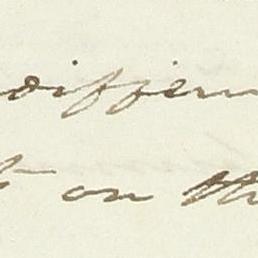 differen
t on th